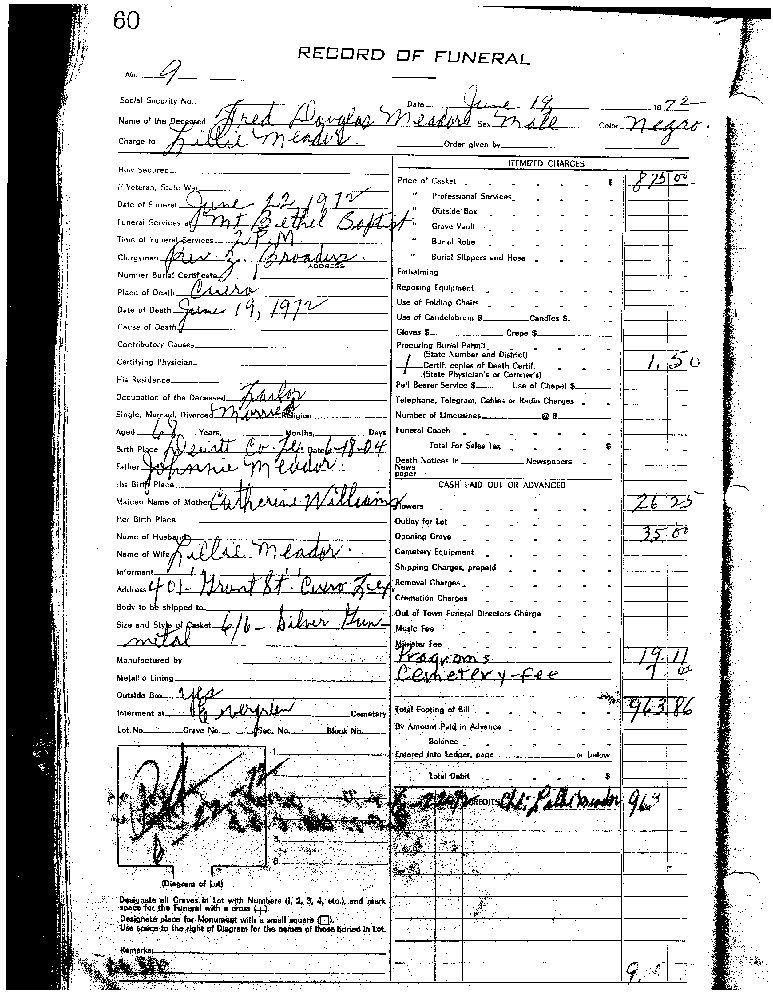 60
RECORD OF FUNERAL
No. 9
Social Security No.
Date June 19 1972
Name of the Deceased Fred Douglas Meador Sex Male Color Negro.
Charge to Lillie Meador Order given by
How Secured
If Veteran, State War
Date of Funeral June 22 1972
Funeral Services at Mt Bethel Baptist
Time of Funeral Services 2 P.M
Clergyman Rev. Z. Broadus ADDRESS
Number Burial Certificate
Place of Death Cuero
Date of Death June 19, 1972
Cause of Death
Contributory Causes
Certifying Physician
His Residence
Occupation of the Deceased
Single, Married, Divorced Married Religion
Aged 68 Years, Months, Days
Birth Place Dewitt Co. Tex Date 6-18-04
Father Johnnie Meador.
His Birth Place
Maiden Name of Mother Catherine Williams
Her Birth Place
Name of Husband
Name of Wife Lillie Meador.
Informant
Address 401- Grunt St. Cuero Tex
Body to be shipped to
Size and Style of Casket 6/6- Silver Gun-
metal
Manufactured by
Metallic Lining
Outside Box yes
Interment at Evergreen Cemetery
Lot No. Grave No. Sec. No. Block No.
(Diagram of Lot)
Designate all Graves in Lot with Numbers (1, 2, 3, 4, etc.), and mark
space for the Funeral with a cross (+).
Designate place for Monument with a small square (□).
Use space to the right of Diagram for the names of those buried in Lot.
Remarks
ITEMIZED CHARGES
Price of Casket $ 875 00
" Professional Services
" Outside Box
" Grave Vault
" Burial Robe
" Burial Slippers and Hose
Embalming
Reposing Equipment
Use of Folding Chairs
Use of Candelabrum $ Candles $
Gloves $ Crepe $
Procuring Burial Permit
(State Number and District)
1 Certif. copies of Death Certif. 1.50
(State Physician's or Coroner's)
Pall Bearer Service $ Use of Chapel $
Telephone, Telegram, Cables or Radio Charges
Number of Limousines @ $
Funeral Coach
Total For Sales Tax $
Death Notices in Newspapers
News
paper
CASH PAID OUT OR ADVANCED
Flowers 26 25
Outlay for Lot
Opening Grave 35 00
Cemetery Equipment
Shipping Charges, prepaid
Removal Charges
Cremation Charges
Out of Town Funeral Directors Charge
Music Fee
Minister Fee
Programs 19 11
Cemetery-fee 7 00
Total Footing of Bill 963.86
By Amount Paid in Advance
Balance
Entered into Ledger, page or below
Total Debit $
CREDITS Meador 963